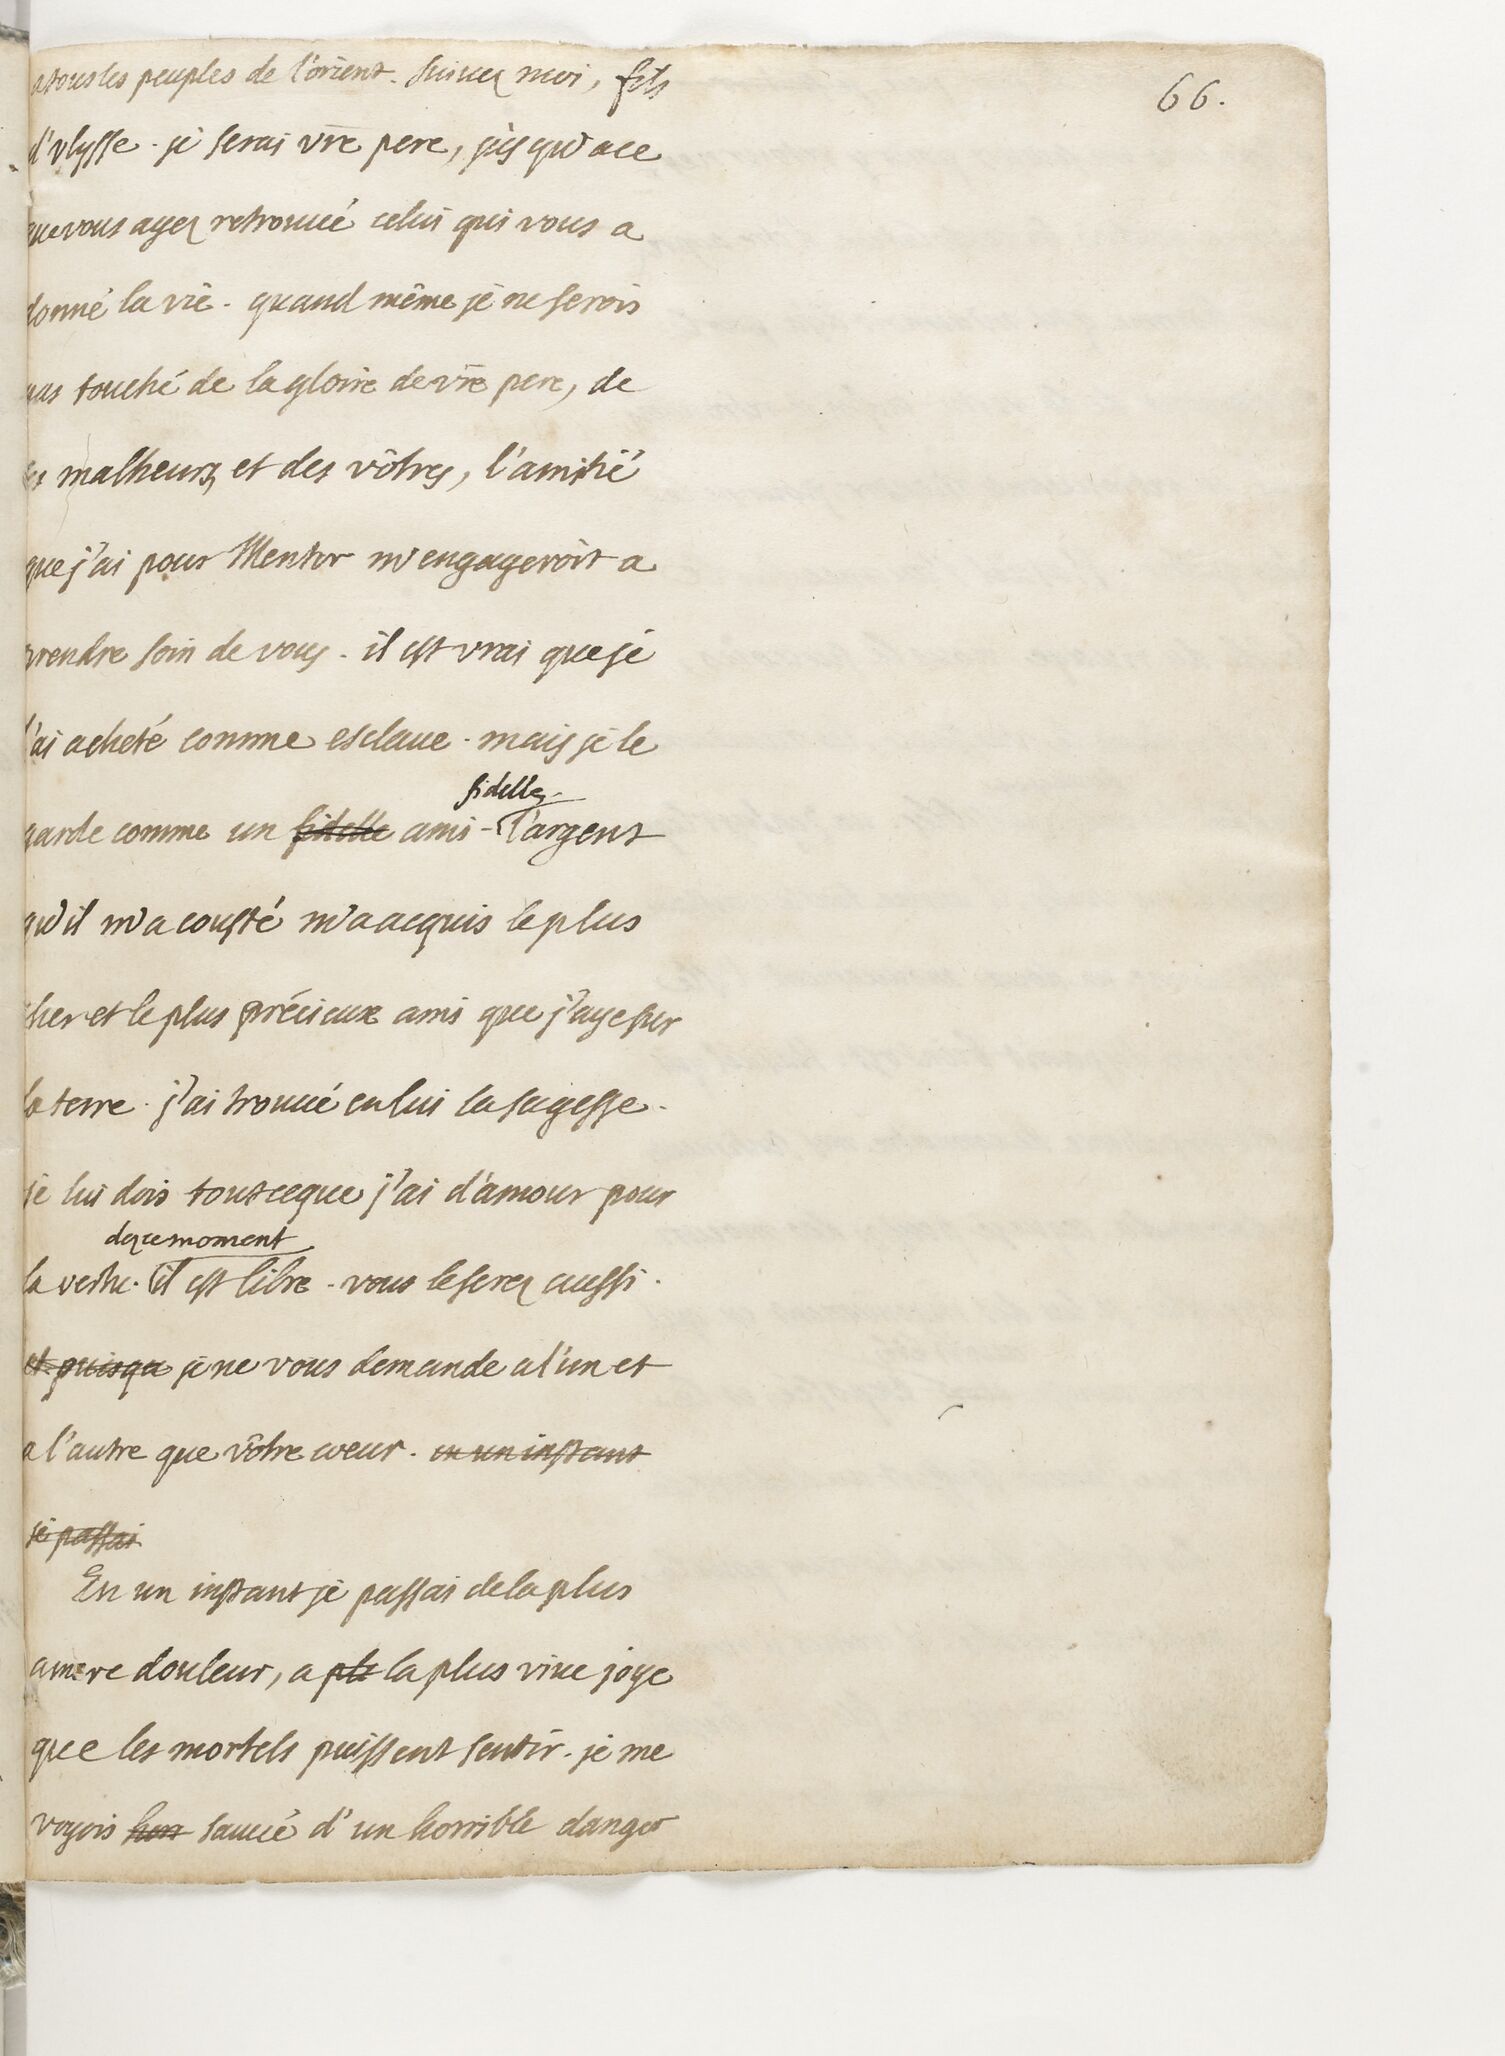 66.
atous les peuples de l'orient. suivez moi, fils
d'vlysse. je serai vre pere, jusqu'ace
que vous ayez retrouué celui qui vous a
donné la vie. quand même je ne serois
pas touché de la gloire de vre pere, de
ses malheurs, et des vôtres, l'amitié
que j'ai pour Mentor m'engageroit a
prendre soin de vous. il est vrai que je
l'ai acheté comme esclaue. mais je le
fidelle.
garde comme un fidelle ami - l'argent
qu'il m'a cousté m'a acquis le plus
cher et le plus précieux ami que j'aye sur
la terre. j'ai trouué en lui la sagesse.
je lui dois tout ceque j'ai d'amour pour
dez ce moment
la vertu. il est libre. vous le serez aussi.
et puisqu je ne vous demande a l'un et
a l'autre que vôtre coeur. en un instant
je passai
En un instant je passai de la plus
amere douleur, a plu la plus viue joye
que les mortels puissent sentir. je me
voyois hors sauué d'un horrible danger